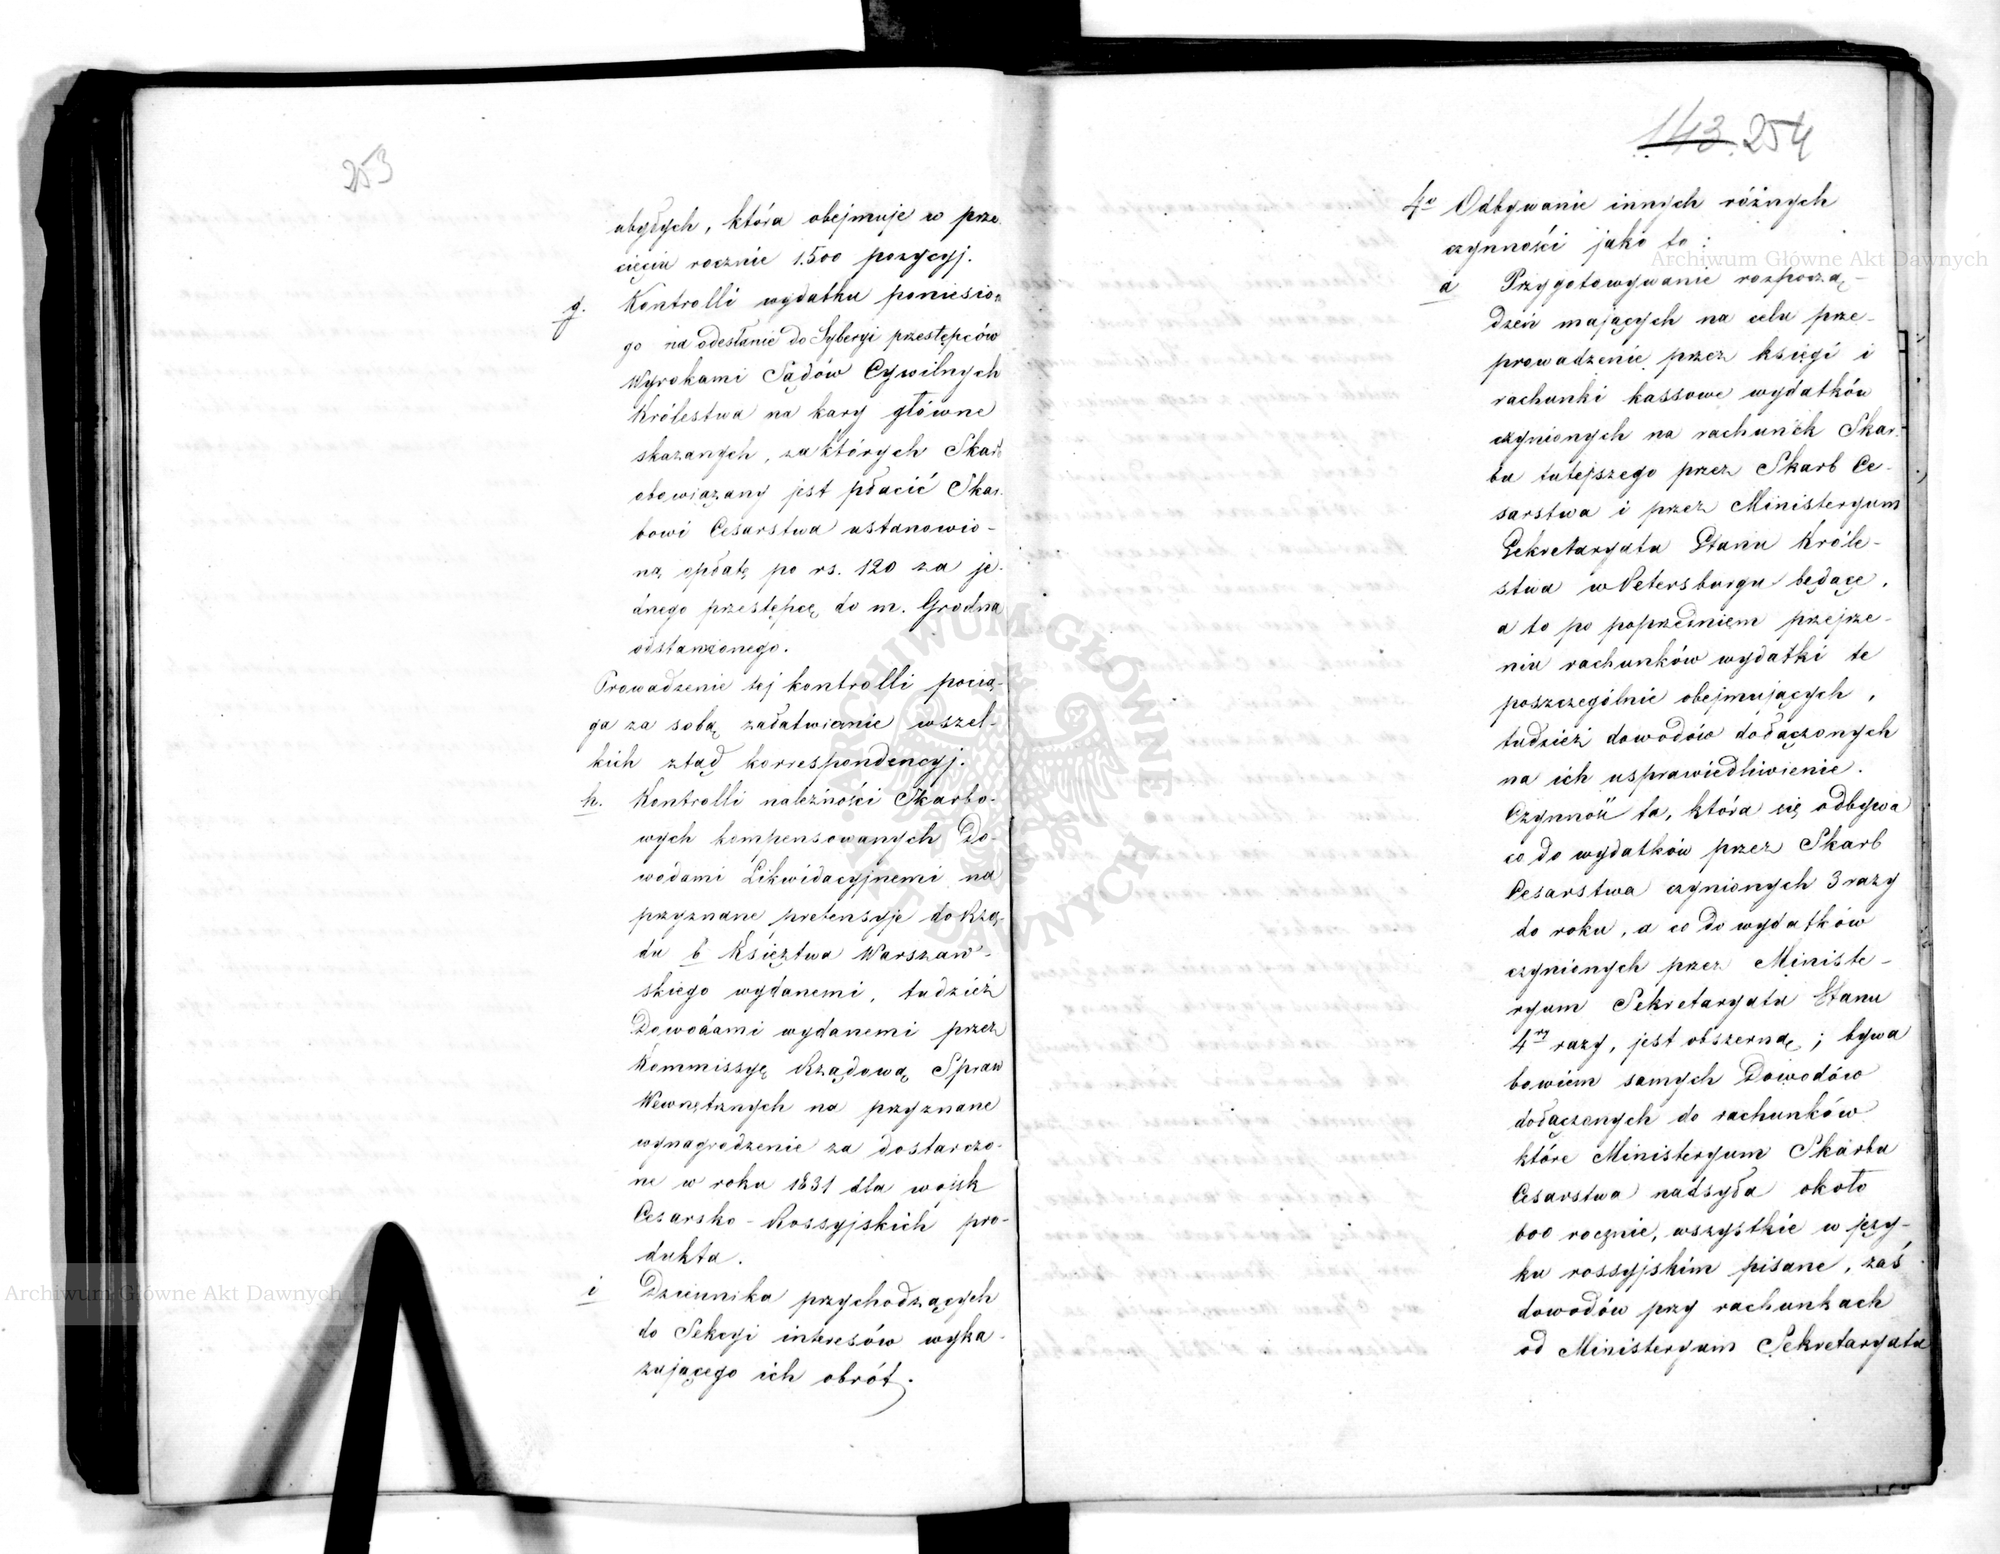 253
ubyłych, która obejmuje w prze
cięciu rocznie 1500 pozycyj.
g. Kontrolli wydatku poniesio-
go na odesłanie do Syberyi przestępców
Wyrokami Sądów Cywilnych
Królestwa na kary główne
skazanych, za których Skarb
obowiązany jest płacić Skar-
bowi Cesarstwa ustanowio-
ną opłatę po rs. 120 za je-
dnego przestępcę do m. Grodna
odstawionego.
Prowadzenie tej kontrolli pocią-
ga za sobą załatwianie wszel-
kich ztąd korrespondencyj.
h. Kontrolli należności Skarbo-
wych kompensowanych Do-
wodami Likwidacyjnemi na
przyznane pretensyje do Rzą-
du b Księztwa Warszaw-
skiego wydanemi, tudzież
Dowodami wydanemi przez
Kommissyę Rządową Spraw
Wewnętrznych na przyznane
wynagrodzenie za dostarczo-
ne w roku 1831 dla wojsk
Cesarsko-Rossyjskich pro-
dukta.
i Dziennika przychodzących
do Sekcyi interesów wyka-
zującego ich obrót.
143. 254
4o Odbywanie innych różnych
czynności jako to:
a Przygotowywanie rozporzą-
dzeń mających na celu prze-
prowadzenie przez księgi i
rachunki kassowe wydatków
czynionych na rachunek Skar-
bu tutejszego przez Skarb Ce-
sarstwa i przez Ministeryum
Sekretaryatu Stanu Króle-
stwa w Petersburgu będące,
a to po poprzedniem przejrze-
niu rachunków wydatki te
poszczególnie obejmujących,
tudzież dowodów dołączonych
na ich usprawiedliwienie.
Czynność ta, która się odbywa
co do wydatków przez Skarb
Cesarstwa czynionych 3 razy
do roku, a co do wydatków
czynionych przez Ministe-
ryum Sekretaryatu Stanu
4ry razy, jest obszerną; bywa
bowiem samych Dowodów
dołączonych do rachunków
które Ministeryum Skarbu
Cesarstwa nadsyła około
600 rocznie, wszystkie w języ-
ku rossyjskim pisane, zaś
dowodów przy rachunkach
od Ministeryum Sekretaryatu
Archiwum Główne Akt Dawnych
Archiwum Główne Akt Dawnych
ARCHIWUM GŁÓWNE AKT DAWNYCH